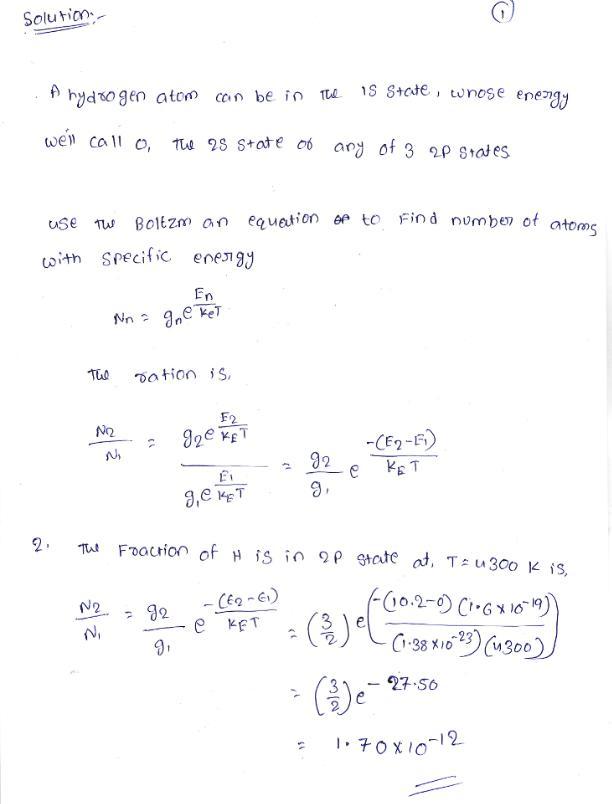 Solution:-
①
A hydrogen atom can be in the 1S state, whose energy
we'll call 0, The 2S state or any of 3 2P states
use the Boltzman equation to Find number of atoms
with specific energy
Nn = gn e^(En/KBT)
The ration is,
N2/N1 = (g2 e^(E2/KBT))/(g1 e^(E1/KBT)) = g2/g1 e^(-(E2-E1)/KBT)
2. The Fraction of H is in 2p state at, T=4300 K is,
N2/N1 = g2/g1 e^(-(E2-E1)/KBT) = (3/2) e^(-(10.2-0)(1.6×10^-19)/(1.38×10^-23)(4300))
= (3/2) e^-27.50
= 1.70×10^-12